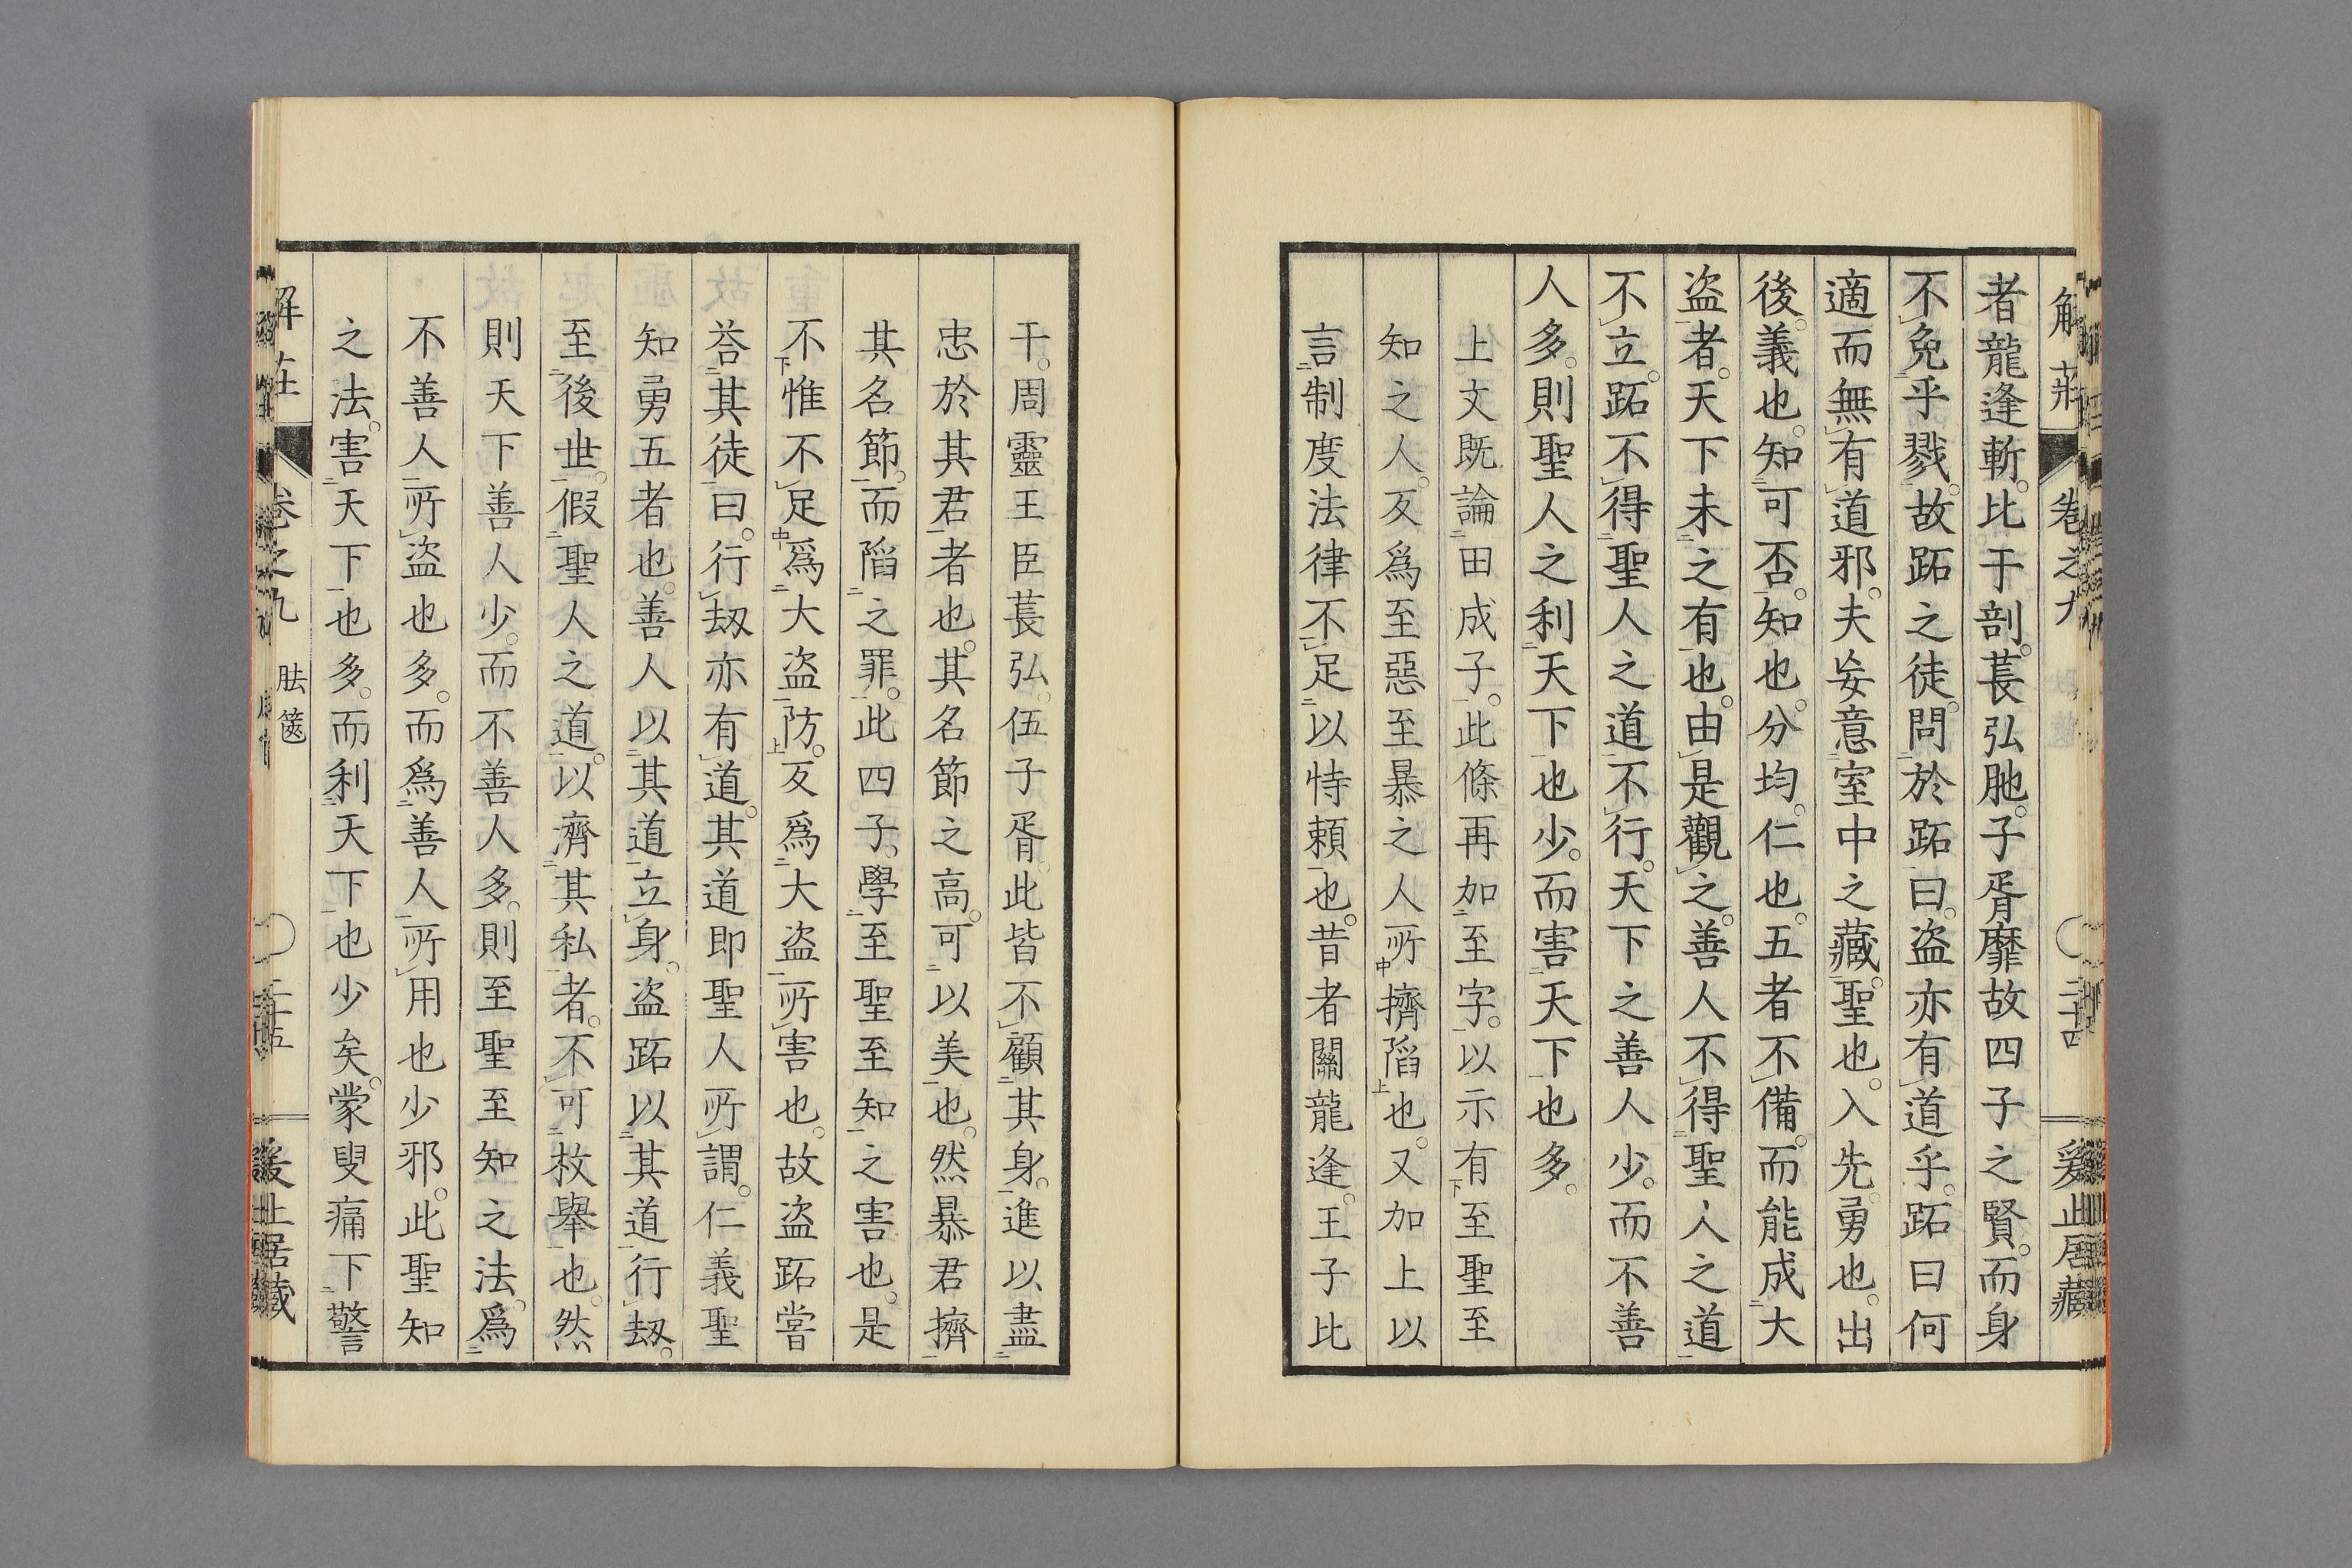 解莊 卷之九 二十四 爰止居藏
者龍逢斬。比干剖。萇弘胣。子胥靡故四子之賢。而身
不免乎戮。故跖之徒。問於跖曰。盗亦有道乎。跖曰何
適而無有道邪。夫妄意室中之藏。聖也。入先。勇也。出
後。義也。知可否。知也。分均。仁也。五者不備。而能成大
盗者。天下未之有也。由是觀之。善人不得聖人之道
不立。跖不得聖人之道不行。天下之善人少。而不善
人多。則聖人之利天下也少。而害天下也多。
上文既論田成子。此條再加至字。以示有至聖至
知之人。反爲至惡至暴之人所擠陷也。又加上以
言制度法律不足以恃賴也。昔者關龍逢。王子比
干。周靈王臣萇弘。伍子胥。此皆不顧其身。進以盡
忠於其君者也。其名節之高。可以美也。然暴君擠
其名節。而陷之罪。此四子。學至聖至知之害也。是
不惟不足爲大盗防。反爲大盗所害也。故盗跖嘗
荅其徒曰。行劫亦有道。其道即聖人所謂。仁義聖
知勇五者也。善人以其道立身。盗跖以其道行劫。
至後世。假聖人之道。以濟其私者。不可枚舉也。然
則天下善人少。而不善人多。則至聖至知之法。爲
不善人所盗也多。而爲善人所用也少邪。此聖知
之法。害天下也多。而利天下也少矣。蒙叟痛下警
解莊 卷之九 胠篋 二十五 爰止居藏